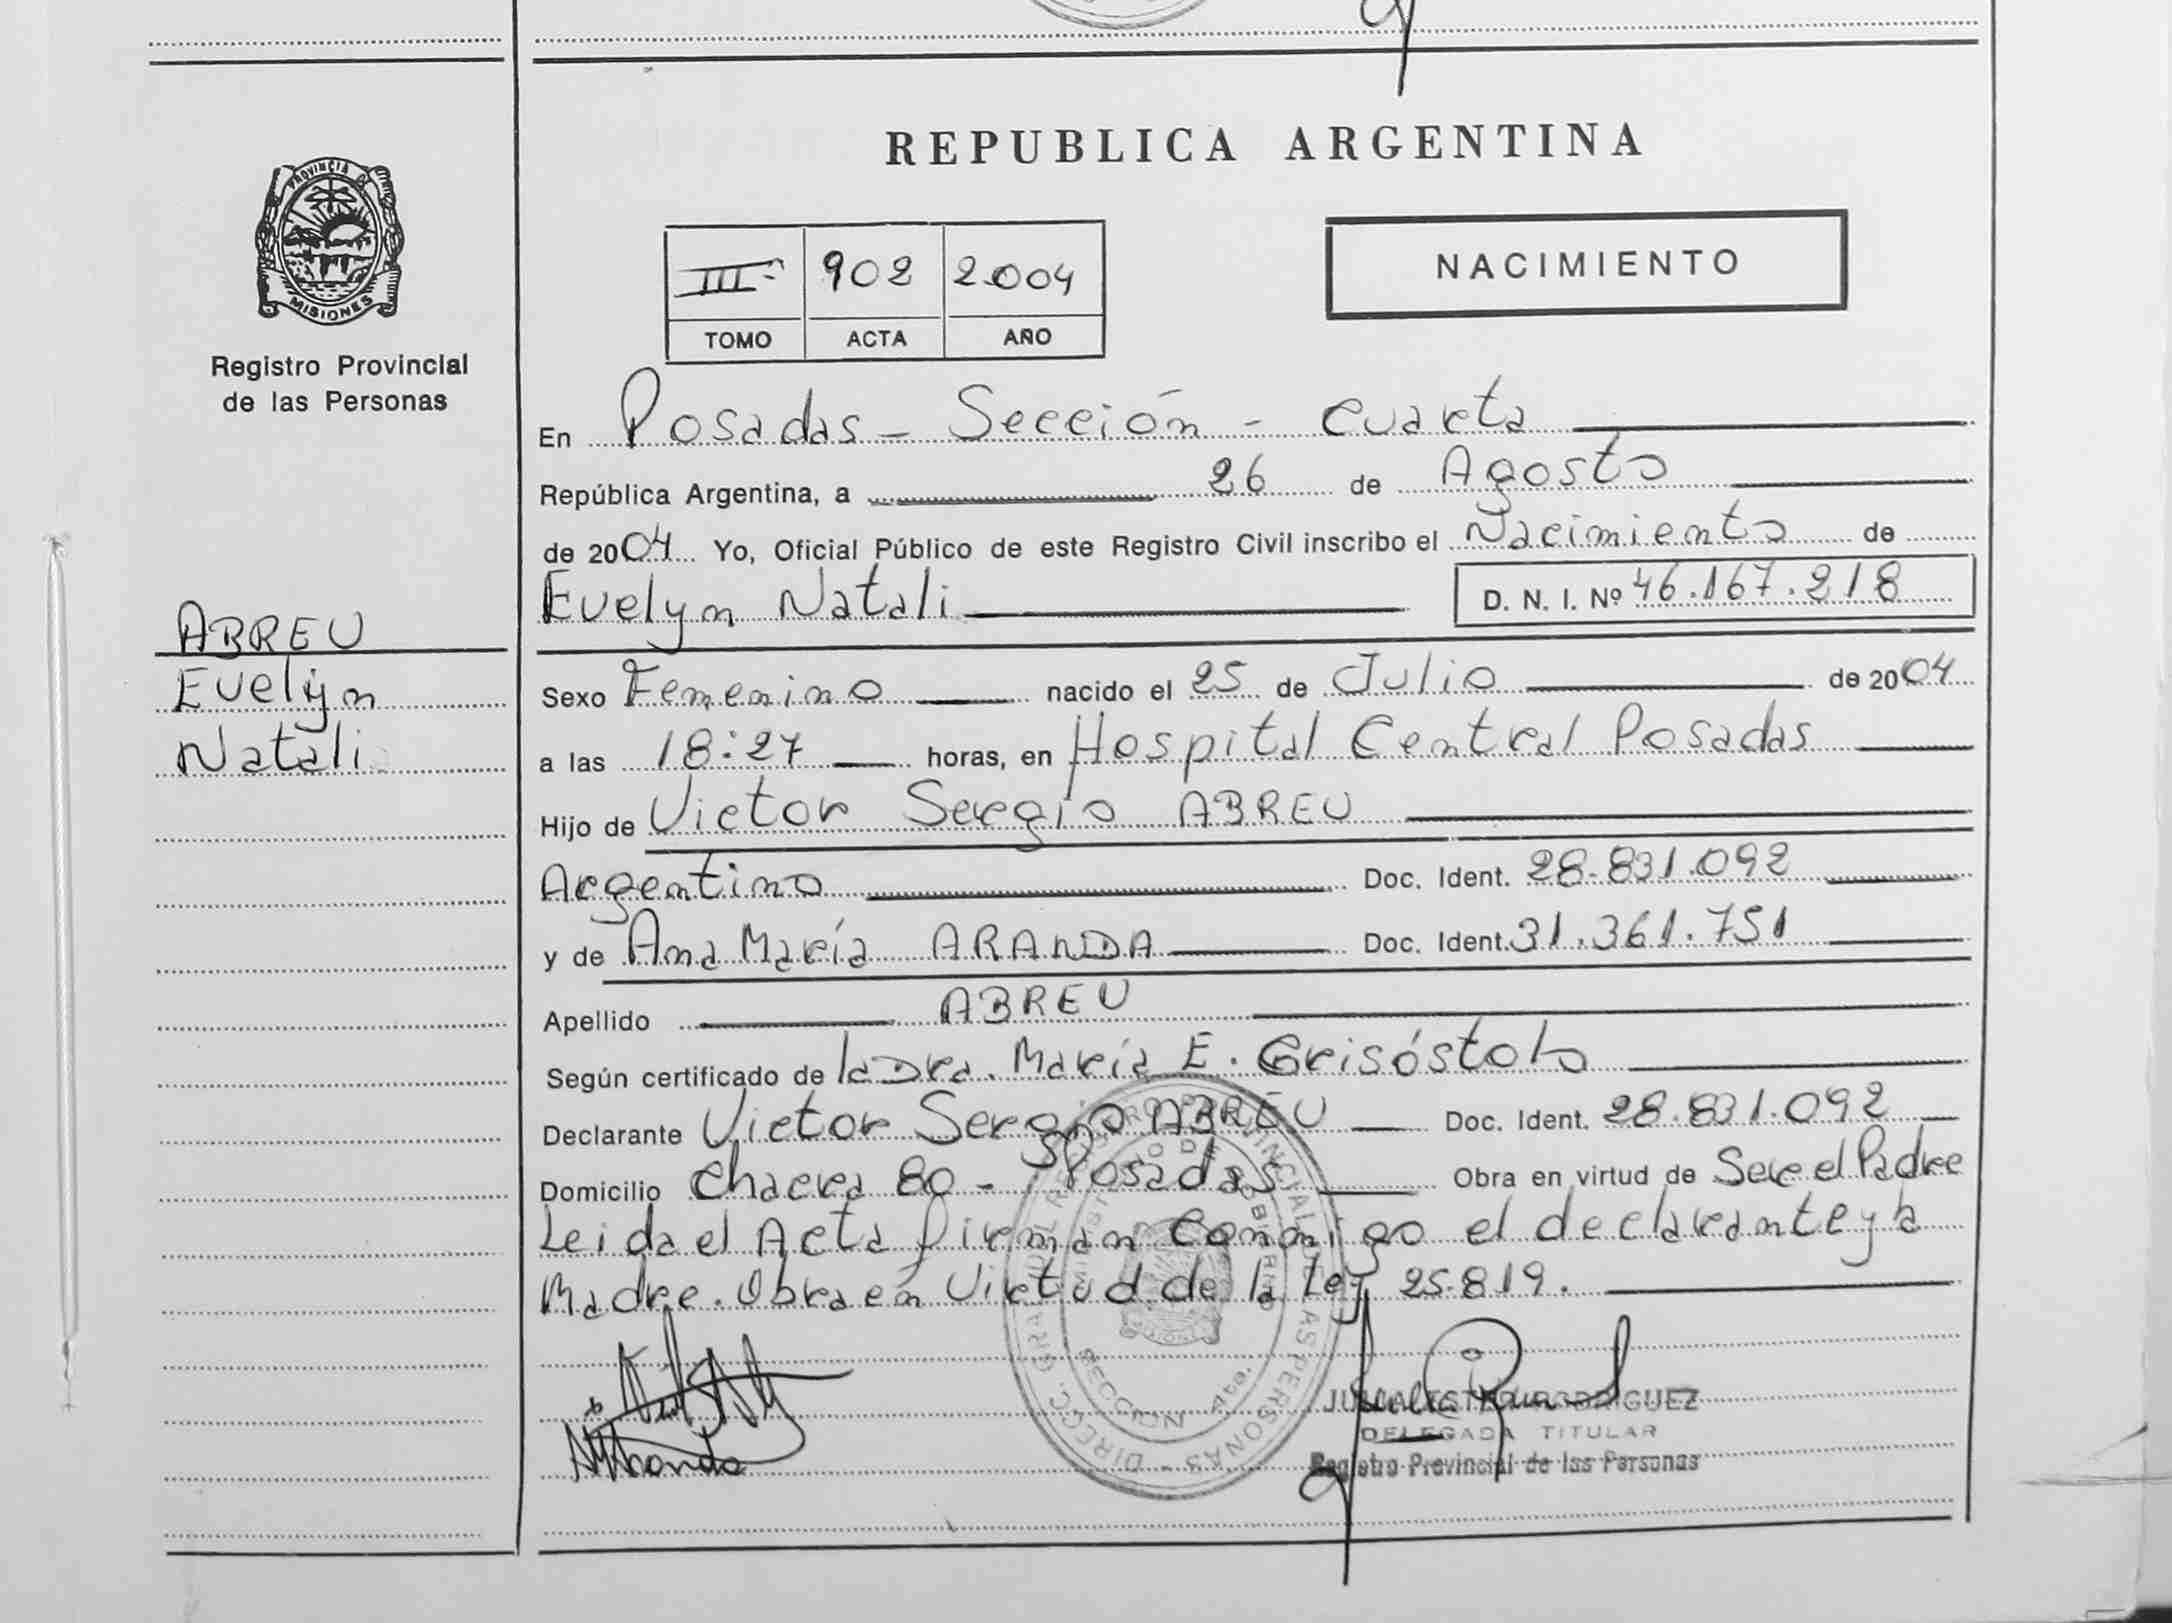 REPUBLICA ARGENTINA
PROVINCIA DE
MISIONES
Registro Provincial
de las Personas
III 902 2004
TOMO ACTA AÑO
NACIMIENTO
En Posadas - Sección - Cuarta
República Argentina, a 26 de Agosto
de 2004 Yo, Oficial Público de este Registro Civil inscribo el Nacimiento de
Evelyn Natali D. N. I. Nº 46.167.218
ABREU
Evelyn
Natali
Sexo Femenino nacido el 25 de Julio de 2004
a las 18:27 horas, en Hospital Central Posadas
Hijo de Victor Sergio ABREU
Argentino Doc. Ident. 28.831.092
y de Ana María ARANDA Doc. Ident. 31.361.751
Apellido ABREU
Según certificado de la Dra. María E. Grisóstolo
Declarante Victor Sergio ABREU Doc. Ident. 28.831.092
Domicilio Chacra 80 - Posadas Obra en virtud de Ser el Padre
Leida el Acta firman Conmigo el declarante y la
Madre. Obra en Virtud de la Ley 25.819.
SECCION 4ta.
RODRIGUEZ
DELEGADA TITULAR
Registro Provincial de las Personas